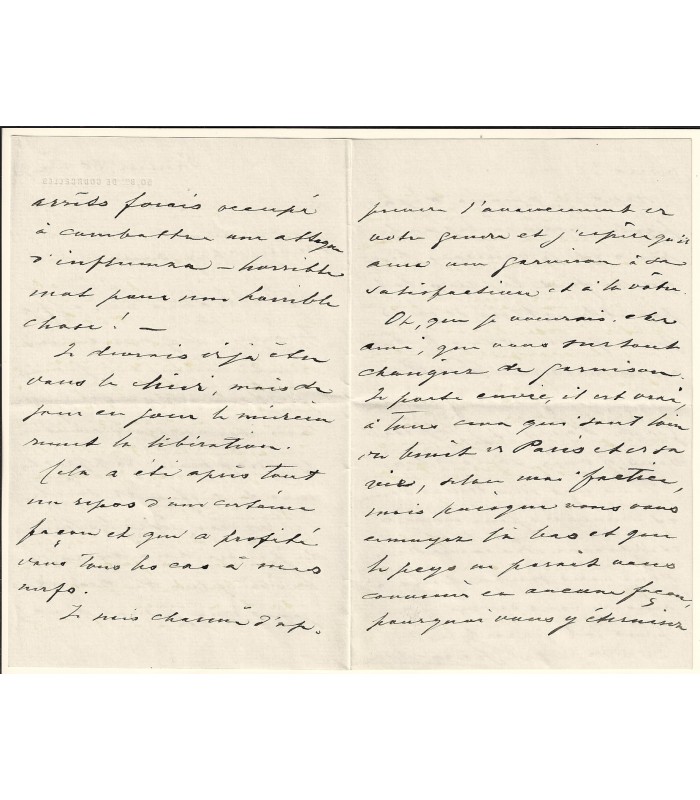 arrêts forcés occupé
à combattre une attaque
d'influenza – horrible
mot pour une horrible
chose! –
Je devrais déjà être
dans le midi, mais de
jour en jour le médecin
remet la libération.
Cela a été après tout
un repos d'une certaine
façon et qui a profité
dans tous les cas à mes
nerfs.
Je suis charmé d'ap-
prendre l'avancement de
votre gendre et j'espère qu'il
aura une garnison à sa
satisfaction et à la vôtre.
Oh, que je voudrais, cher
ami, que vous surtout
changiez de garnison.
Je porte envie, il est vrai,
à tous ceux qui sont loin
du bruit de Paris et de sa
vie, selon moi factice,
mais puisque vous vous
ennuyez là bas et que
le pays ne paraît vous
convenir en aucune façon,
pourquoi vous y éterniser